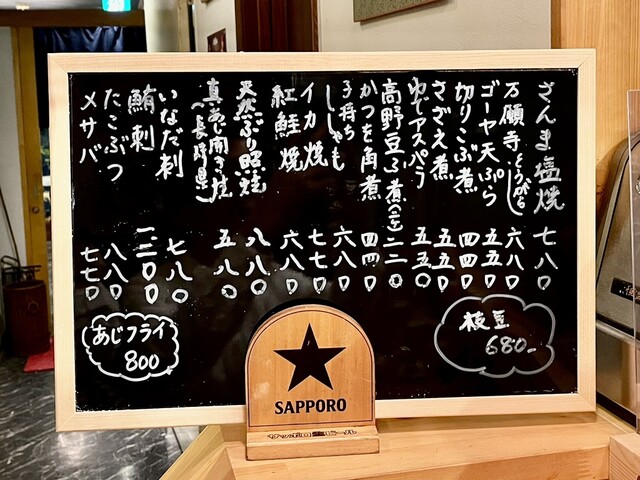 さんま塩焼 七八〇
万願寺とうがらし 六八〇
ゴーヤ天ぷら 五五〇
切りこぶ煮 四四〇
さざえ煮 五五〇
ゆでアスパラ 五五〇
高野豆ふ煮(一ケ) 二二〇
かつを角煮 四四〇
子持ちししゃも 六八〇
イカ焼 七七〇
紅鮭焼 六八〇
天然ぶり照焼 八八〇
真あじ開き焼(長崎県) 五八〇
いなだ刺 七八〇
鮪刺 一二〇〇
たこぶつ 八八〇
メサバ 七七〇
枝豆
680-
あじフライ
800
SAPPORO